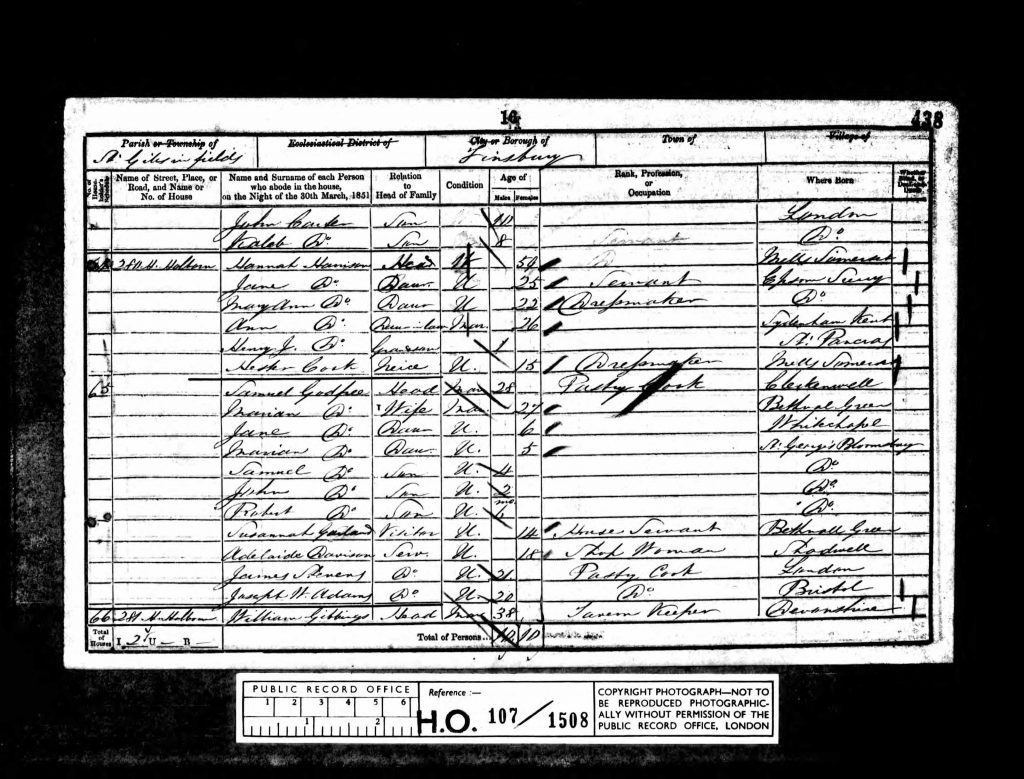 16
438
Parish or Township of
Ecclesiastical District of
City or Borough of
Town of
Village of
St Giles in fields
Finsbury
No. of House-holder's Schedule
Name of Street, Place, or Road, and Name or No. of House
Name and Surname of each Person who abode in the house, on the Night of the 30th March, 1851
Relation to Head of Family
Condition
Age of
Males
Females
Rank, Profession, or Occupation
Where Born
Whether Blind, or Deaf-and-Dumb
John Son 10 London
Kaleb Do Son 8 Do
281 H. Holborn Hannah Harrison Head W 54 Mells Somerset
Jane Do Daur U 25 Servant Epsom Surry
Mary Ann Do Daur U 22 Dressmaker Do
Ann Do Daur in law Mar 26 Sydenham Kent
Henry J. Do Grandson 1 St Pancras
Hester Cook Neice U. 15 Dressmaker Mells Somerset
65 Samuel Godfree Head Mar 28 Pastry Cook Clerkenwell
Marian Do Wife Mar 27 Bethnal Green
Jane Do Daur U. 6 Whitechapel
Marian Do Daur. U. 5 St George's Bloomsbury
Samuel Do Son U. 4 Do
John Do Son U. 2 Do
Robert Do Son U. mo. 6 Do
Susannah Garland Visitor U. 14 House Servant Bethnall Green
Adelaide Davison Serv. U. 18 Shop Woman Shadwell
James Stevens Do U. 21 Pastry Cook London
Joseph W. Adams Do Un 20 Do Bristol
66 281 H. Holborn William Gibbings Head Mar 38 Tavern Keeper Devonshire
Total of Houses
I 2 U — B —
Total of Persons... 10 10
PUBLIC RECORD OFFICE
1 2 3 4 5 6
1 2
Reference :—
H.O. 107/1508
COPYRIGHT PHOTOGRAPH—NOT TO
BE REPRODUCED PHOTOGRAPHIC-
ALLY WITHOUT PERMISSION OF THE
PUBLIC RECORD OFFICE, LONDON